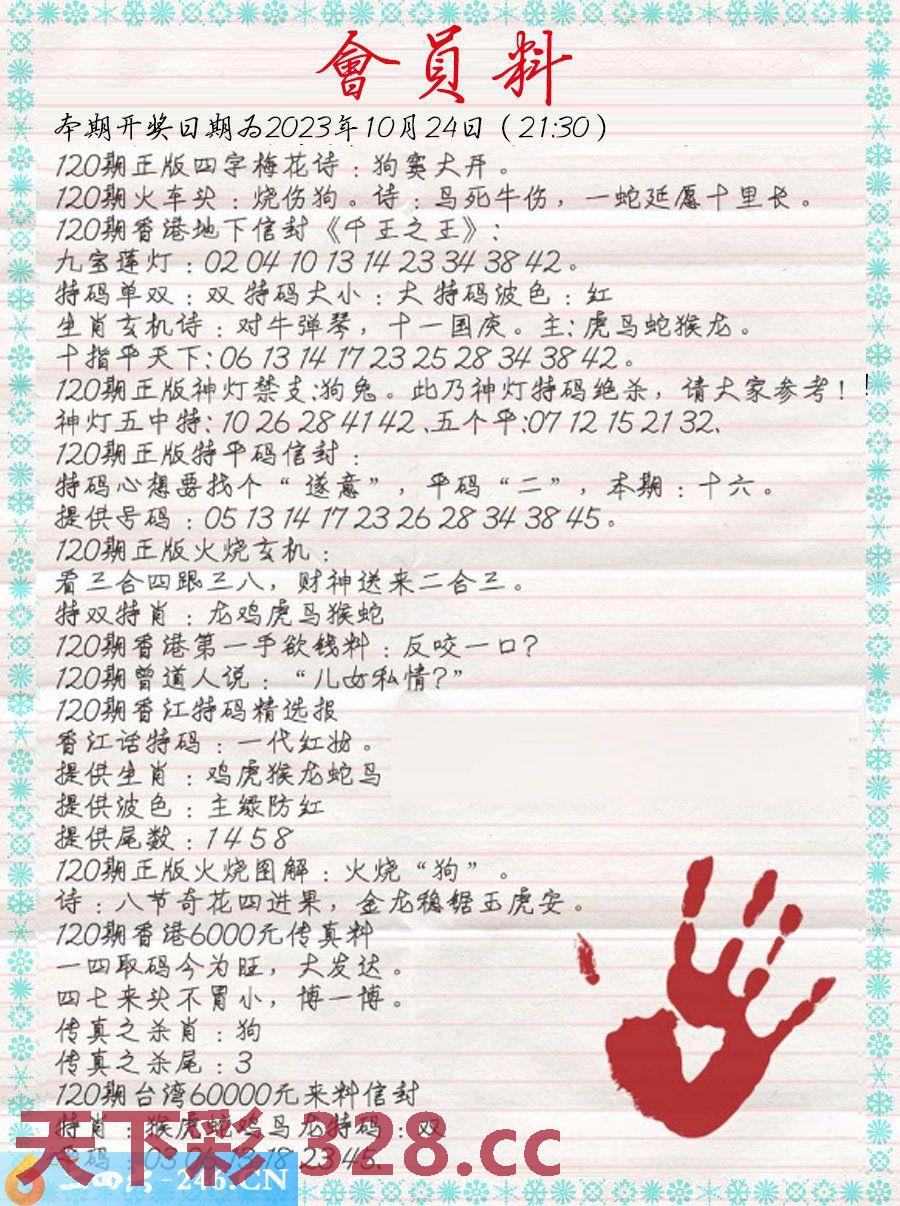 會員料
本期开奖日期为2023年10月24日（21:30）
120期正版四字梅花诗：狗窦大开。
120期火车头：烧伤狗。诗：鸟死牛伤，一蛇延愿十里长。
120期香港地下信封《千王之王》：
九宝莲灯：02 04 10 13 14 23 34 38 42。
特码单双：双 特码大小：大 特码波色：红
生肖玄机诗：对牛弹琴，十一国庆。主：虎马蛇猴龙。
十指平天下：06 13 14 17 23 25 28 34 38 42。
120期正版神灯禁支:狗兔。此乃神灯特码绝杀，请大家参考！!
神灯五中特：10 26 28 41 42、五个平:07 12 15 21 32、
120期正版特平码信封：
特码心想要找个“遂意”，平码“二”，本期：十六。
提供号码：05 13 14 17 23 26 28 34 38 45。
120期正版火烧玄机：
看三合四跟三八，财神送来二合三。
特双特肖：龙鸡虎马猴蛇
120期香港第一手欲钱料：反咬一口？
120期曾道人说：“儿女私情?”
120期香江特码精选报
香江话特码：一代红妆。
提供生肖：鸡虎猴龙蛇马
提供波色：主绿防红
提供尾数：1 4 5 8
120期正版火烧图解：火烧“狗”。
诗：八节奇花四进果，金龙稳锯玉虎安。
120期香港6000元传真料
一四取码今为旺，大发达。
四七来头不冒小，博一博。
传真之杀肖：狗
传真之杀尾：3
120期台湾60000元来料信封
特肖：猴虎蛇鸡马龙特码：双
码：03 04 13 18 23 45、
天下彩 328.cc
-246.CN